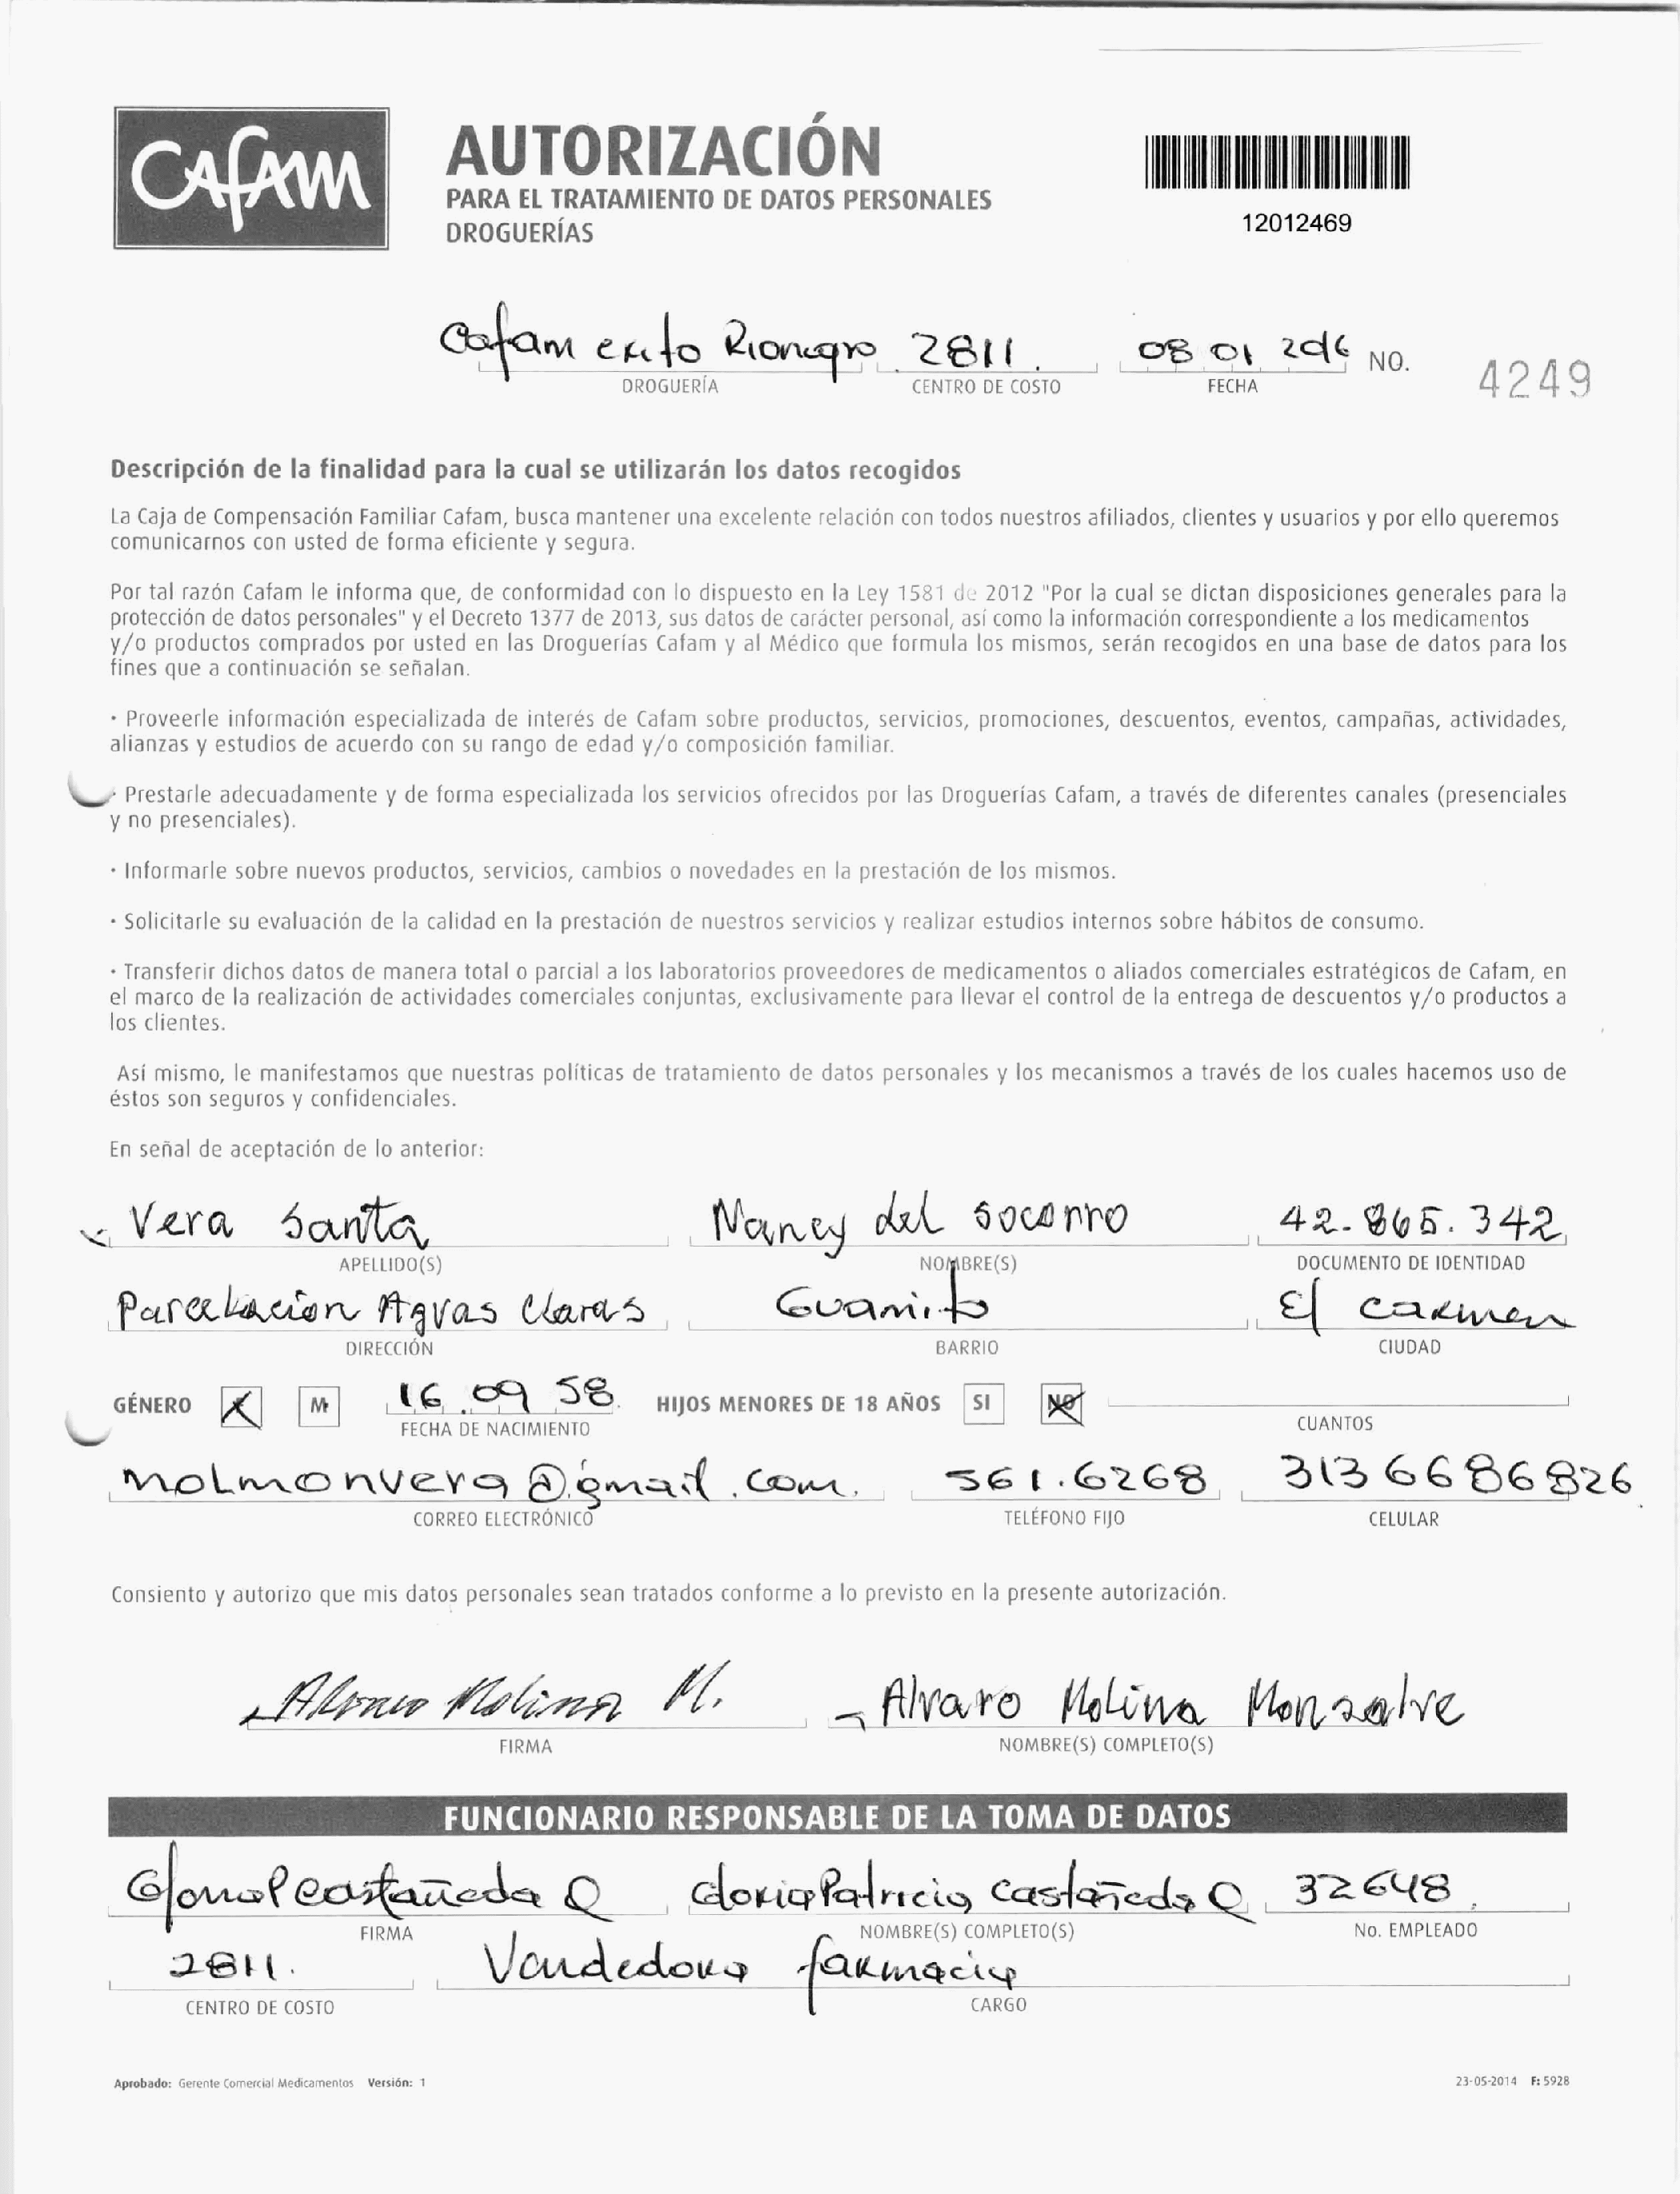 CAFAM
AUTORIZACIÓN
PARA EL TRATAMIENTO DE DATOS PERSONALES
DROGUERÍAS
12012469
Cafam exito Rionegro 2811. 08 01 2016 NO. 4249
DROGUERÍA CENTRO DE COSTO FECHA
Descripción de la finalidad para la cual se utilizarán los datos recogidos
La Caja de Compensación Familiar Cafam, busca mantener una excelente relación con todos nuestros afiliados, clientes y usuarios y por ello queremos
comunicarnos con usted de forma eficiente y segura.
Por tal razón Cafam le informa que, de conformidad con lo dispuesto en la Ley 1581 de 2012 "Por la cual se dictan disposiciones generales para la
protección de datos personales" y el Decreto 1377 de 2013, sus datos de carácter personal, así como la información correspondiente a los medicamentos
y/o productos comprados por usted en las Droguerías Cafam y al Médico que formula los mismos, serán recogidos en una base de datos para los
fines que a continuación se señalan.
· Proveerle información especializada de interés de Cafam sobre productos, servicios, promociones, descuentos, eventos, campañas, actividades,
alianzas y estudios de acuerdo con su rango de edad y/o composición familiar.
· Prestarle adecuadamente y de forma especializada los servicios ofrecidos por las Droguerías Cafam, a través de diferentes canales (presenciales
y no presenciales).
· Informarle sobre nuevos productos, servicios, cambios o novedades en la prestación de los mismos.
· Solicitarle su evaluación de la calidad en la prestación de nuestros servicios y realizar estudios internos sobre hábitos de consumo.
· Transferir dichos datos de manera total o parcial a los laboratorios proveedores de medicamentos o aliados comerciales estratégicos de Cafam, en
el marco de la realización de actividades comerciales conjuntas, exclusivamente para llevar el control de la entrega de descuentos y/o productos a
los clientes.
Así mismo, le manifestamos que nuestras políticas de tratamiento de datos personales y los mecanismos a través de los cuales hacemos uso de
éstos son seguros y confidenciales.
En señal de aceptación de lo anterior:
Vera Santa Nancy del Socorro 42.865.342
APELLIDO(S) NOMBRE(S) DOCUMENTO DE IDENTIDAD
Parcelacion Aguas Claras Guamito El Carmen
DIRECCIÓN BARRIO CIUDAD
GÉNERO X M 16 09 58. HIJOS MENORES DE 18 AÑOS SI NO
FECHA DE NACIMIENTO CUANTOS
molmonvera@gmail.com. 561.6268 3136686826
CORREO ELECTRÓNICO TELÉFONO FIJO CELULAR
Consiento y autorizo que mis datos personales sean tratados conforme a lo previsto en la presente autorización.
Alvaro Molina M. Alvaro Molina Monsalve
FIRMA NOMBRE(S) COMPLETO(S)
FUNCIONARIO RESPONSABLE DE LA TOMA DE DATOS
Gloria P Castañeda Q Gloria Patricia Castañeda Q 32648.
FIRMA NOMBRE(S) COMPLETO(S) No. EMPLEADO
2811. Vendedora farmacia
CENTRO DE COSTO CARGO
Aprobado: Gerente Comercial Medicamentos Versión: 1 23-05-2014 F: 5928